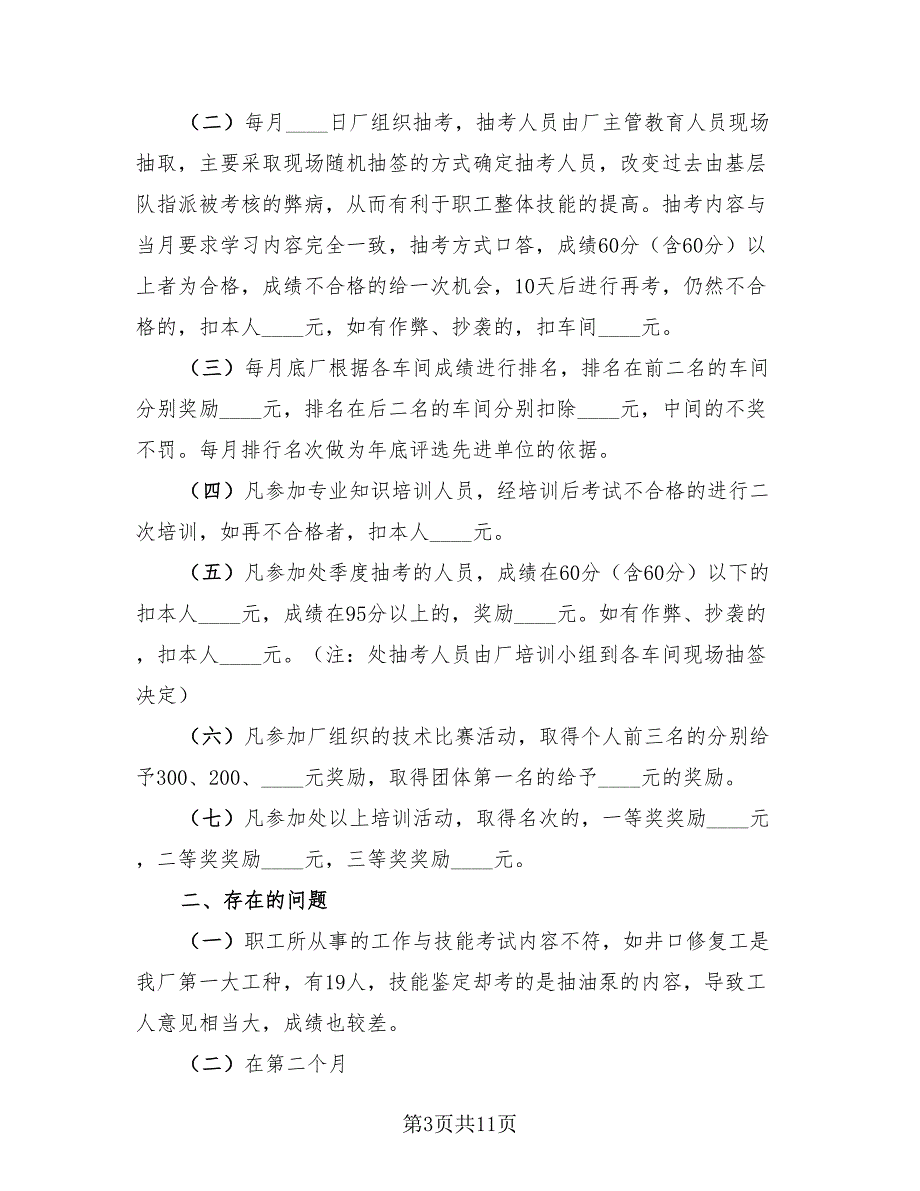 （二）每月____日厂组织抽考，抽考人员由厂主管教育人员现场
抽取，主要采取现场随机抽签的方式确定抽考人员，改变过去由基层
队指派被考核的弊病，从而有利于职工整体技能的提高。抽考内容与
当月要求学习内容完全一致，抽考方式口答，成绩60分（含60分）以
上者为合格，成绩不合格的给一次机会，10天后进行再考，仍然不合
格的，扣本人____元，如有作弊、抄袭的，扣车间____元。
（三）每月底厂根据各车间成绩进行排名，排名在前二名的车间
分别奖励____元，排名在后二名的车间分别扣除____元，中间的不奖
不罚。每月排行名次做为年底评选先进单位的依据。
（四）凡参加专业知识培训人员，经培训后考试不合格的进行二
次培训，如再不合格者，扣本人____元。
（五）凡参加处季度抽考的人员，成绩在60分（含60分）以下的
扣本人____元，成绩在95分以上的，奖励____元。如有作弊、抄袭的
，扣本人____元。（注：处抽考人员由厂培训小组到各车间现场抽签
决定）
（六）凡参加厂组织的技术比赛活动，取得个人前三名的分别给
予300、200、____元奖励，取得团体第一名的给予____元的奖励。
（七）凡参加处以上培训活动，取得名次的，一等奖奖励____元
，二等奖奖励____元，三等奖奖励____元。
二、存在的问题
（一）职工所从事的工作与技能考试内容不符，如井口修复工是
我厂第一大工种，有19人，技能鉴定却考的是抽油泵的内容，导致工
人意见相当大，成绩也较差。
（二）在第二个月
第3页共11页